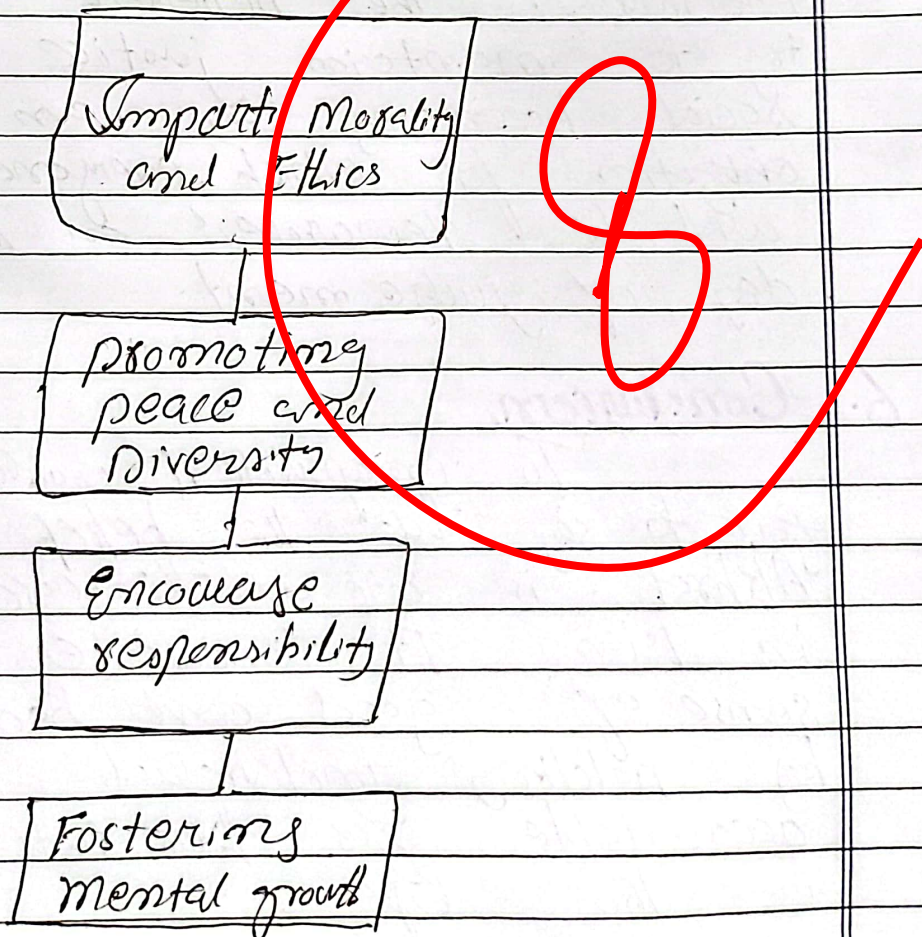 Impart Morality
and Ethics
8
promoting
peace and
Diversity
Encourage
responsibility
Fostering
mental growth